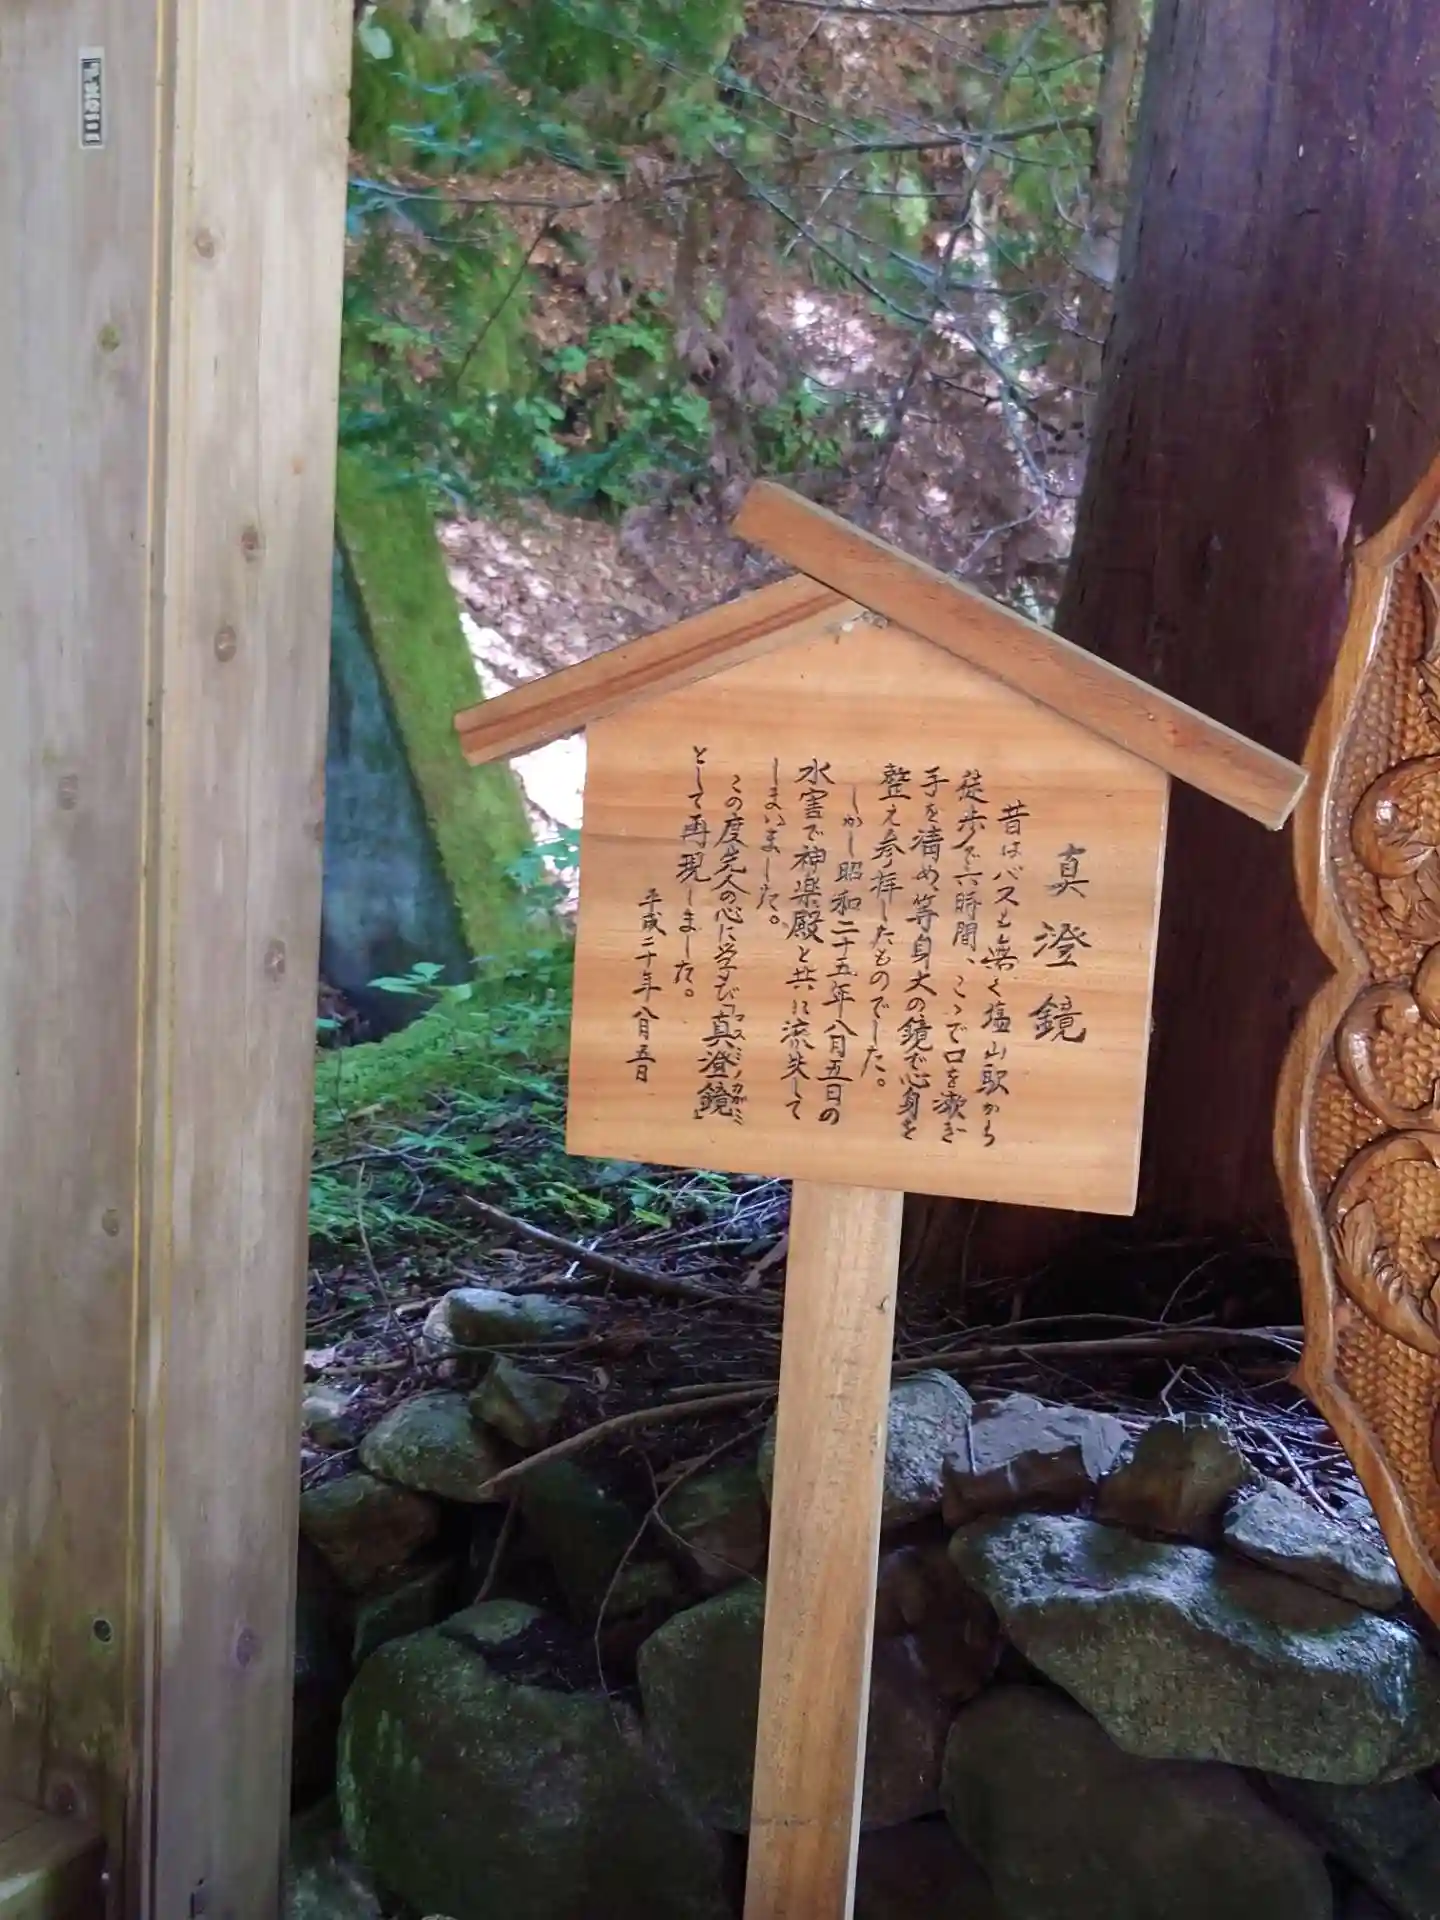 真澄鏡
昔はバスも無く塩山駅から
徒歩で六時間、こゝで口を漱ぎ
手を清め、等身大の鏡で心身を
整え参拝したものでした。
しかし昭和二十五年八月五日の
水害で神楽殿と共に流失して
しまいました。
この度先人の心に学び「真澄鏡」
マスミノカガミ
として再現しました。
平成二十年八月五日